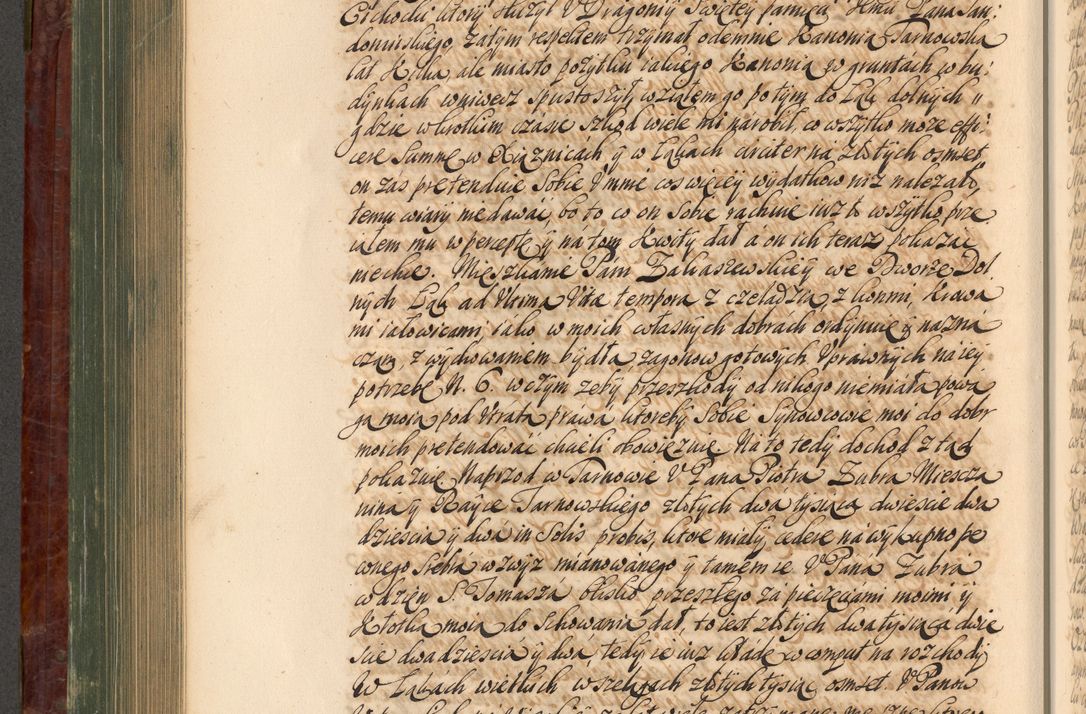 Cichocki ktory służył V Dragoniy Swiętey pamięci Xmci Pana San:
domirskiego, zatym respektem trzymał odemnie Kanonią Tarnowską
lat kilka, ale miasto pożytku takiego Kanonią w gruntach w bu:
dynkach wniwecz spustoszył, wziąłem go potym do Łąk dolnych
gdzie wkrotkim czasie szkod wiele mi narobił, co wszytko może effi:
cere summę w Xiąznicach y w Łąkach circiter na złotych osmset,
on zas pretenduie sobie V mnie cos więcey wydatkow niz należało,
temu wiary niedawać, bo to co on sobie rachuie iuz to wszytko prze
iałem mu w percepte, y na tom kwity dał a on ich teraz pokazać
niechce. Mieszkanie Pani Zakaszewskiey we Dworze Dol
nych Łąk ad Vltima Vitæ tempora z czeladzią, z konmi, krowa
mi iałowicami, iako w moich własnych dobrach ordynuię y nazna
czam, z wychowaniem bydła, zagonow gotowych Vprawnych na iey
potrzebę N. 6. wczym zeby przeszkody od nikogo niemiała powa
gą moią pod Vtratą prawa ktoreby sobie Synowcowie moi do dobr
moich pretendować chcieli obowięzuię. Na to tedy dochod z tąd
pokazuię. Naprzod w Tarnowie V Pana Piotra Zubra Mieszcza
nina y Rayce Tarnowskiego złotych dwa tysiąca dwieście dwa
dzieścia y dwa in Solis probis, ktore miały cedere na wykupno pe
wnego srebra wzwyz mianowanego y tamem ie V Pana Zubra
w dzien S. Tomasza blisko przeszłego za pieczęciami moimi y
Xioską moią do schowania dał, to iest złotych dwa tysiąca dwie
scie dwadzieścia y dwa, tedy ie iuz kładę w comput na rozchody
W Łąkach wielkich w szelążach złotych tysiąc osmset. V Panow